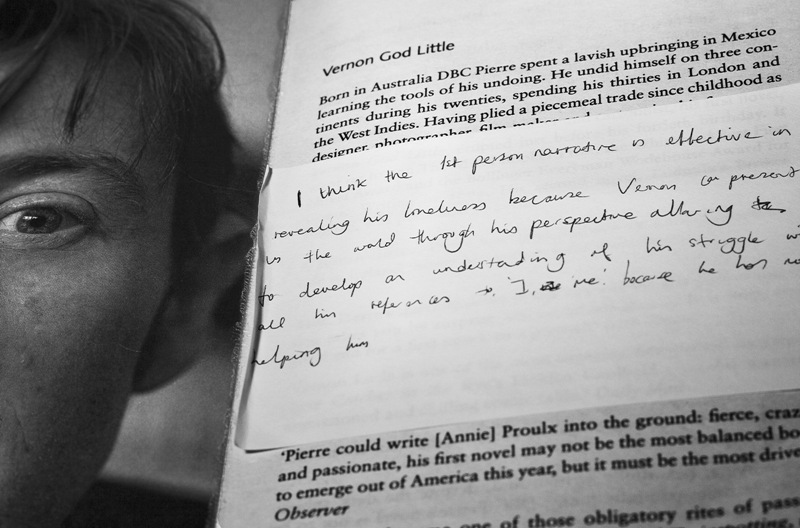 Vernon God Little
Born in Australia DBC Pierre spent a lavish upbringing in Mexico
learning the tools of his undoing. He undid himself on three con-
tinents during his twenties, spending his thirties in London and
the West Indies. Having plied a piecemeal trade since childhood as
designer, photographer, film maker
I think the 1st person narrative is effective in
revealing his loneliness because Vernon can present
us the world through his perspective allowing
to develop an understanding of his struggle
all his references to 'I, me' because he has
helping him
'Pierre could write [Annie] Proulx into the ground: fierce,
and passionate, his first novel may not be the most balanced
to emerge out of America this year, but it must be the most
Observer
one of those obligatory rites of